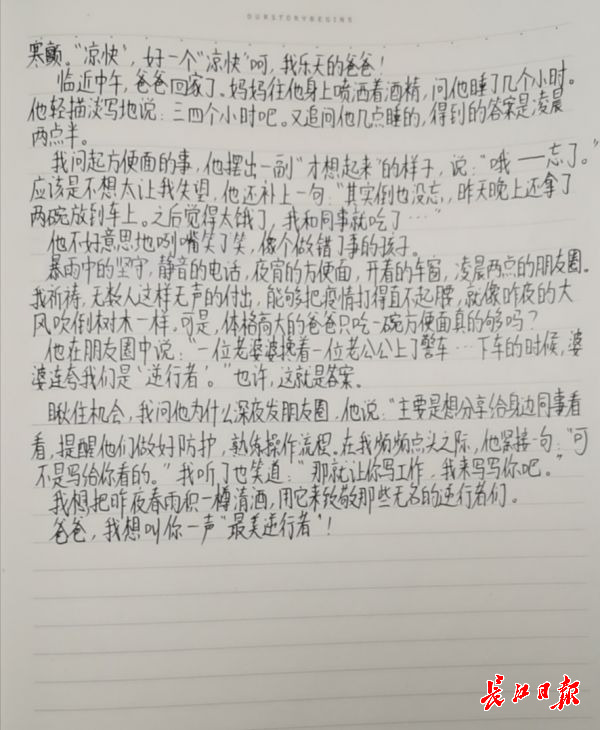 OURSTORYBEGINS
寒颤。“凉快”，好一个“凉快”呵，我乐天的爸爸！
临近中午，爸爸回家了。妈妈往他身上喷洒着酒精，问他睡了几个小时。
他轻描淡写地说：三四个小时吧。又追问他几点睡的，得到的答案是凌晨
两点半。
我问起方便面的事，他摆出一副“才想起来”的样子，说：“哦——忘了。”
应该是不想太让我失望，他还补上一句：“其实倒也没忘，昨天晚上还拿了
两碗放到车上。之后觉得太饿了，我和同事就吃了…”
他不好意思地咧嘴笑了笑，像个做错了事的孩子。
暴雨中的坚守，静音的电话，夜宵的方便面，开着的车窗，凌晨两点的朋友圈。
我祈祷，无数人这样无声的付出，能够把疫情打得直不起腰，就像昨夜的大
风吹倒树木一样。可是，体格高大的爸爸只吃一碗方便面真的够吗？
他在朋友圈中说：“一位老婆婆搀着一位老公公上了警车…下车的时候，婆
婆连夸我们是‘逆行者’。”也许，这就是答案。
瞅住机会，我问他为什么深夜发朋友圈，他说：“主要是想分享给身边同事看
看，提醒他们做好防护，熟练操作流程。在我频频点头之际，他紧接一句：“可
不是写给你看的。”我听了也笑道：“那就让你写工作，我来写写你吧。”
我想把昨夜春雨积一樽清酒，用它来致敬那些无名的逆行者们。
爸爸，我想叫你一声“最美逆行者”！
长江日报